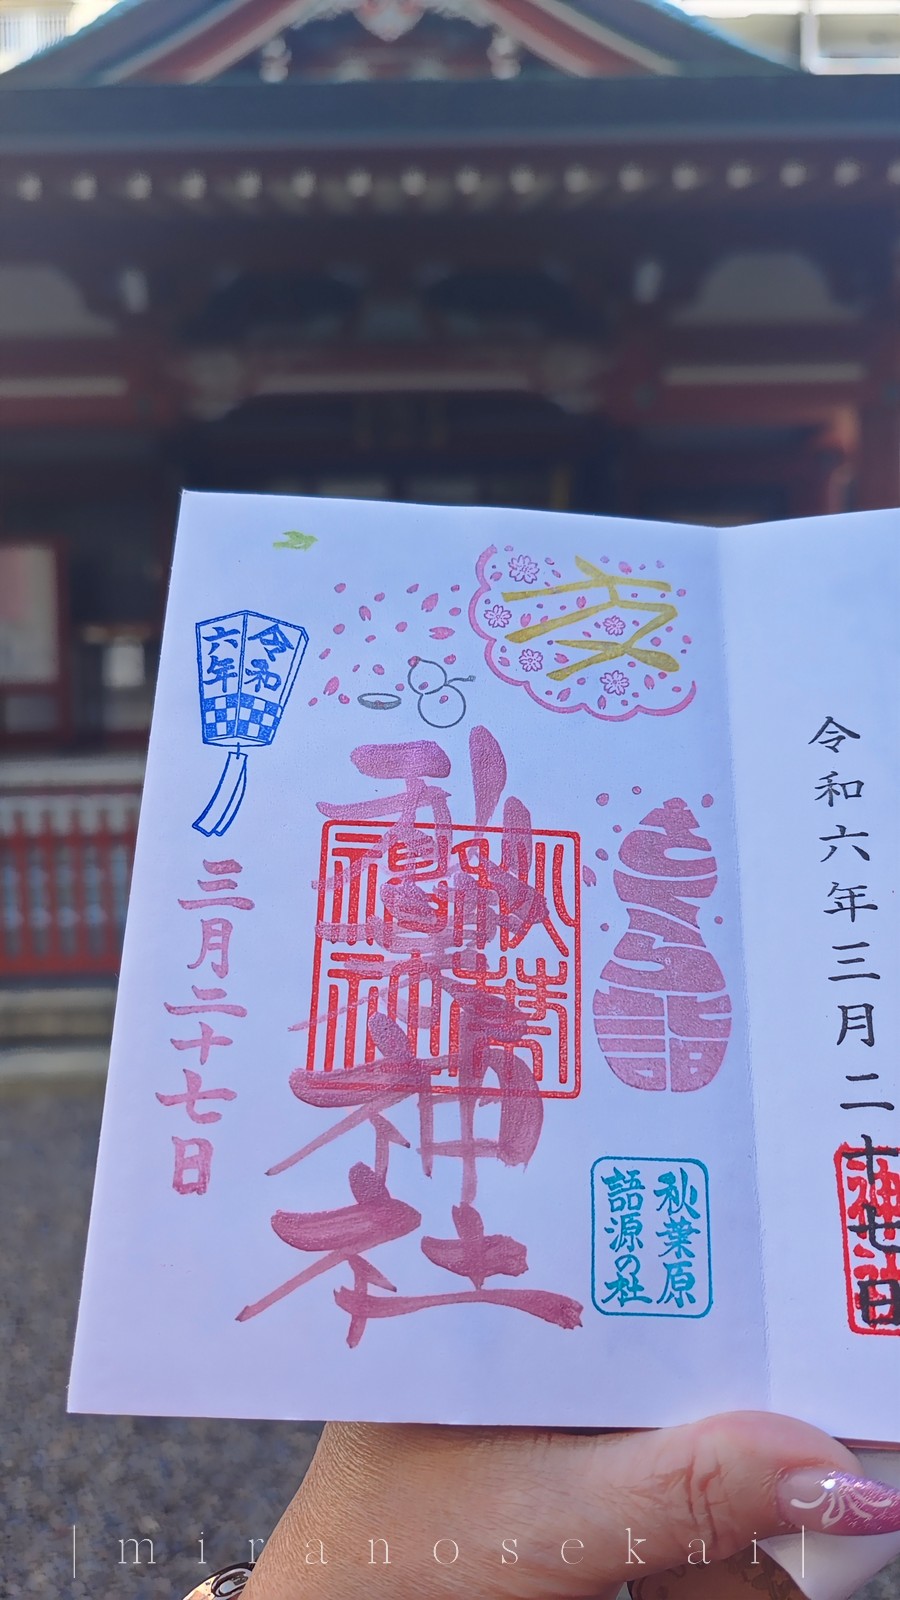 令和六年三月二十七日
さくら詣
秋葉原
語源の杜
秋葉神社
秋葉
令和
六年
三月二十七日
|miranosekai|